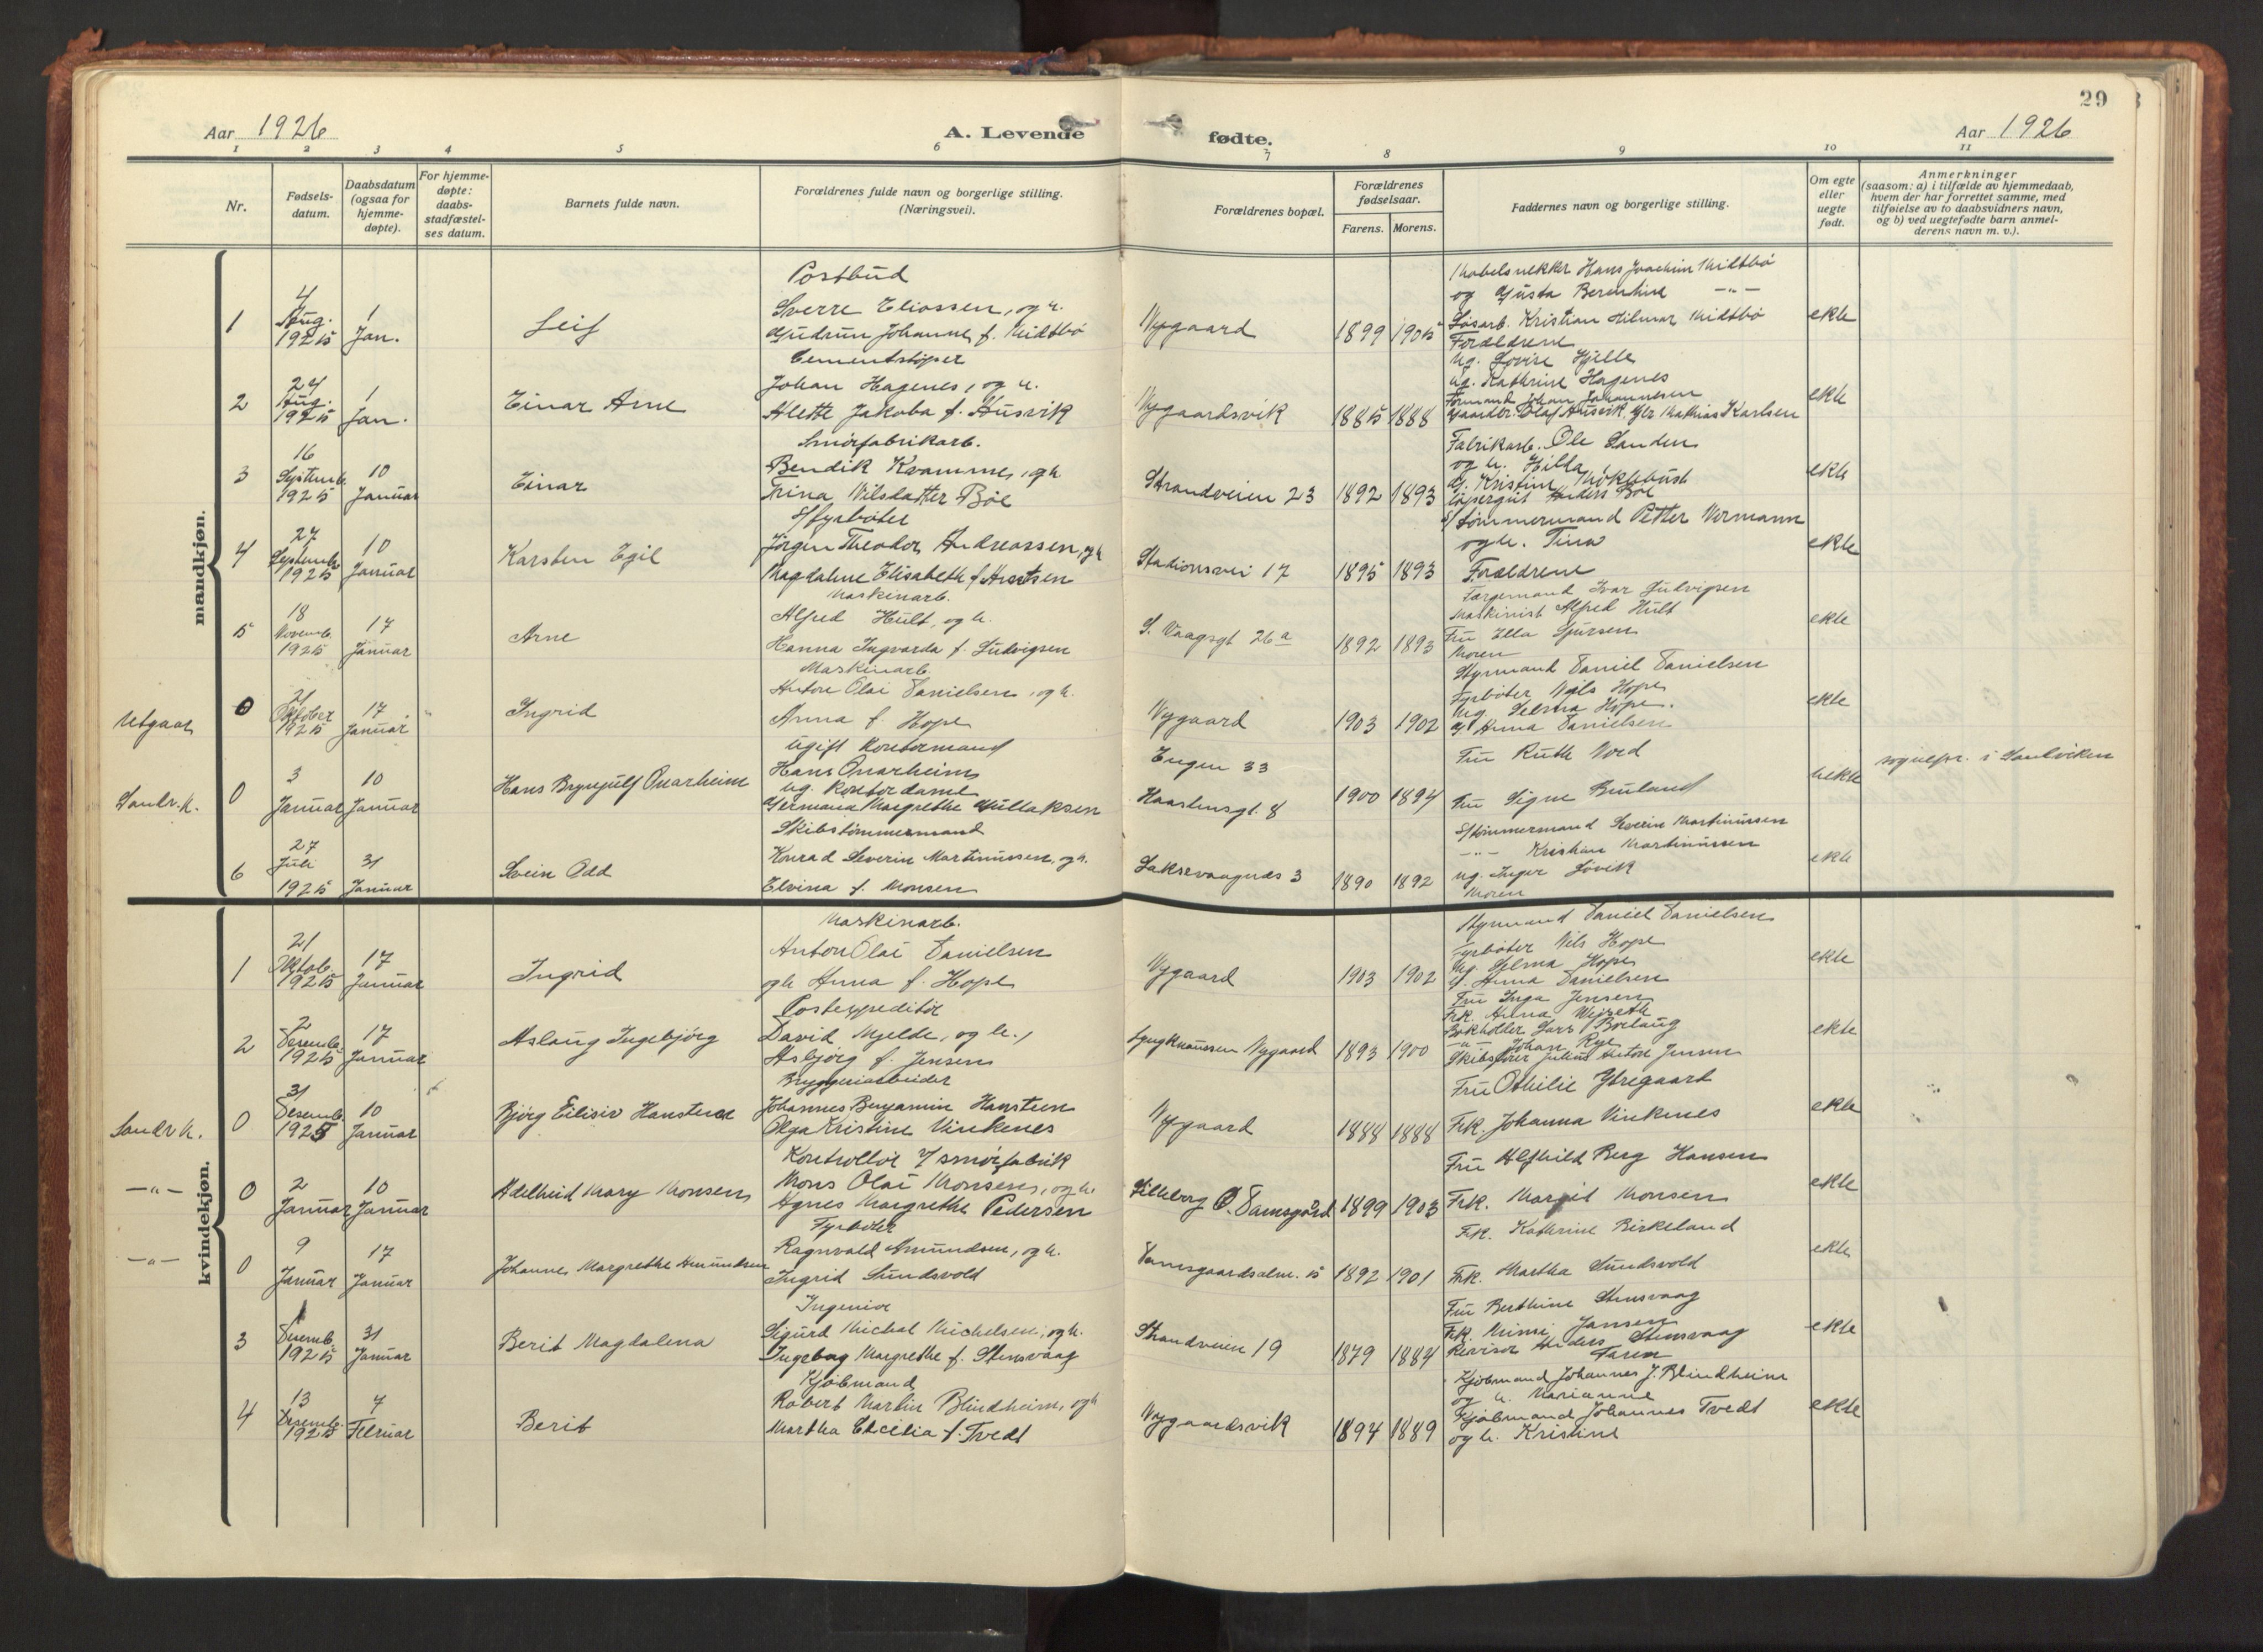 29
Aar 1926
A. Levende
fødte.
Aar 1926
1 2 3 4 5 6 7 8 9 10 11
Nr.
Fødsels-
datum.
Daabsdatum
(ogsaa for
hjemme-
døpte).
For hjemme-
døpte:
daabs-
stadfæstel-
ses datum.
Barnets fulde navn.
Forældrenes fulde navn og borgerlige stilling.
(Næringsvei).
Forældrenes bopæl.
Forældrenes
fødselsaar.
Farens. Morens.
Faddernes navn og borgerlige stilling.
Om egte
eller
uegte
født.
Anmerkninger
(saasom: a) i tilfælde av hjemmedaab,
hvem der har forrettet samme, med
tilføielse av to daabsvidners navn,
og b) ved uegtefødte barn anmel-
derens navn m. v.).
mandkjøn.
1
4
Aug.
1925
1
Jan.
Leif
Postbud
Sverre Eliassen, og h.
Gudrun Johanne f. Midtbø
Nygaard
1899 1905
Møbelsnekker Hans Joachim Midtbø
og Gusta Berentine -"-
Løsarb. Kristian Hilmar Midtbø
Forældrene
ekte
2
24
Aug.
1925
1
Jan.
Einar Arne
Cementstøper
Johan Hagenes, og h.
Alette Jakoba f. Husvik
Nygaardsvik
1885 1888
Ug. Lovise Hjelle
Ug. Kathrine Hagenes
Formand Johan Johannesen
Gaardbr. Olaf Husvik. Mathias Karlsen
ekte
3
16
Septemb.
1925
10
Januar
Einar
Smørfabrikarb.
Bendik Kvamme, og h.
Trina Nilsdatter Bøe
Strandveien 23
1892 1893
Fabrikarb. Ole Sanden
og h. Hilda
G. Kristine Møklebust
Anders Bøe
ekte
4
27
Septemb.
1925
10
Januar
Karsten Egil
S/fyrbøter
Jørgen Theodor Andreassen, og h
Magdalene Elisabeth f. Arntsen
Stadionsvei 17
1895 1893
S/tømmermand Petter Vermann
og h. Tina
Forældrene
ekte
5
18
Novemb.
1925
17
Januar
Arne
Maskinarb.
Alfred Hult, og h.
Hanna Ingvarda f. Ludvigsen
S. Vaagsgt 26a
1892 1893
Færgemand Ivar Ludvigsen
Maskinist Alfred Hult
Fru Ella Sjursen
Moren
ekte
Utgaar
0
21
Oktober
1925
17
Januar
Ingrid
Maskinarb.
Anton Olai Danielsen, og h.
Anna f. Hope
Nygaard
1903 1902
Styrmand Daniel Danielsen
Fyrbøter Nils Hope
Ug. Selma Hope.
G. Anna Danielsen
ekte
Sandv. k.
0
3
Januar
10
Januar
Hans Brynjulf Onarheim
Ugift kontormand
Hans Onarheim
ug. kontordame
Germana Margrethe Gullaksen
Engen 33
Haastensgt. 8
1900 1894
Fru Ruth Nord
Fru Signe Bruland
uekte
sogneprr. i Sandviken
6
27
Juli
1925
31
Januar
Svein Odd
Skibstømmermand
Konrad Severin Martinussen, og h.
Elvina f. Monsen
Laksevaagnæs 3
1890 1892
S/tømmermand Severin Martinussen
-"- Kristian Martinussen
ug. Inger Løvik
Moren
ekte
kvindekjøn.
1
21
Oktob.
1925
17
Januar
Ingrid
Maskinarb.
Anton Olai Danielsen
og h Anna f. Hope
Nygaard
1903 1902
Styrmand Daniel Danielsen
Fyrbøter Nils Hope
Ug. Selma Hope
G. Anna Danielsen
ekte
2
2
Desemb.
1925
17
Januar
Aslaug Ingebjørg
Postexpeditør
David Mjelde, og h.,
Asbjørg f. Jensen
Lyngknausen Nygaard
1893 1900
Fru Inga Jensen
Frk. Anna Mejseth
Bokholder Lars Børlaug
-"- Johan Rye
Skibsfører Julius Anton Jensen
ekte
Sandv k.
0
31
Desemb.
1925
10
Januar
Bjørg Eilisiv Hansteen
Bryggeriarbeider
Johannes Benjamin Hansteen
Olga Kristine Vinkenes
Nygaard
1888 1888
Fru Othilie Ytregaard
Frk. Johanna Vinkenes
ekte
-"-
0
2
Januar
10
Januar
Adelheid Mary Monsen
Kontrollør v/ smørfabrik
Mons Olai Monsen, og h.
Agnes Margrethe Pedersen
Lilleborg Ø. Damsgård
1899 1903
Fru Alfhild Berg Hansen
Frk. Margit Monsen
ekte
-"-
0
9
Januar
17
Januar
Johanne Margrethe Amundsen
Fyrbøter
Ragnvald Amundsen, og h.
Ingrid Sundsvold
Damsgaardsalm. 15
1892 1901
Frk. Kathrine Birkeland
Frk. Martha Sundsvold
ekte
3
1
Desemb.
1925
31
Januar
Berit Magdalena
Ingeniør
Sigurd Michal Michelsen, og h.
Ingeborg Margrethe f. Stensvaag
Strandveien 19
1879 1884
Fru Berthine Stensvaag
Frk. Mimi Jansen
Revisor Anders Stensvaag
Faren
ekte
4
13
Desemb.
1925
7
Februar
Berit
Kjøbmand
Robert Martin Blindheim, og h
Martha Cecilia f. Tvedt
Nygaardsvik
1894 1889
Kjøbmand Johannes J. Blindheim
og h. Marianne
Kjøbmand Johannes Tvedt
og h. Kristine
ekte